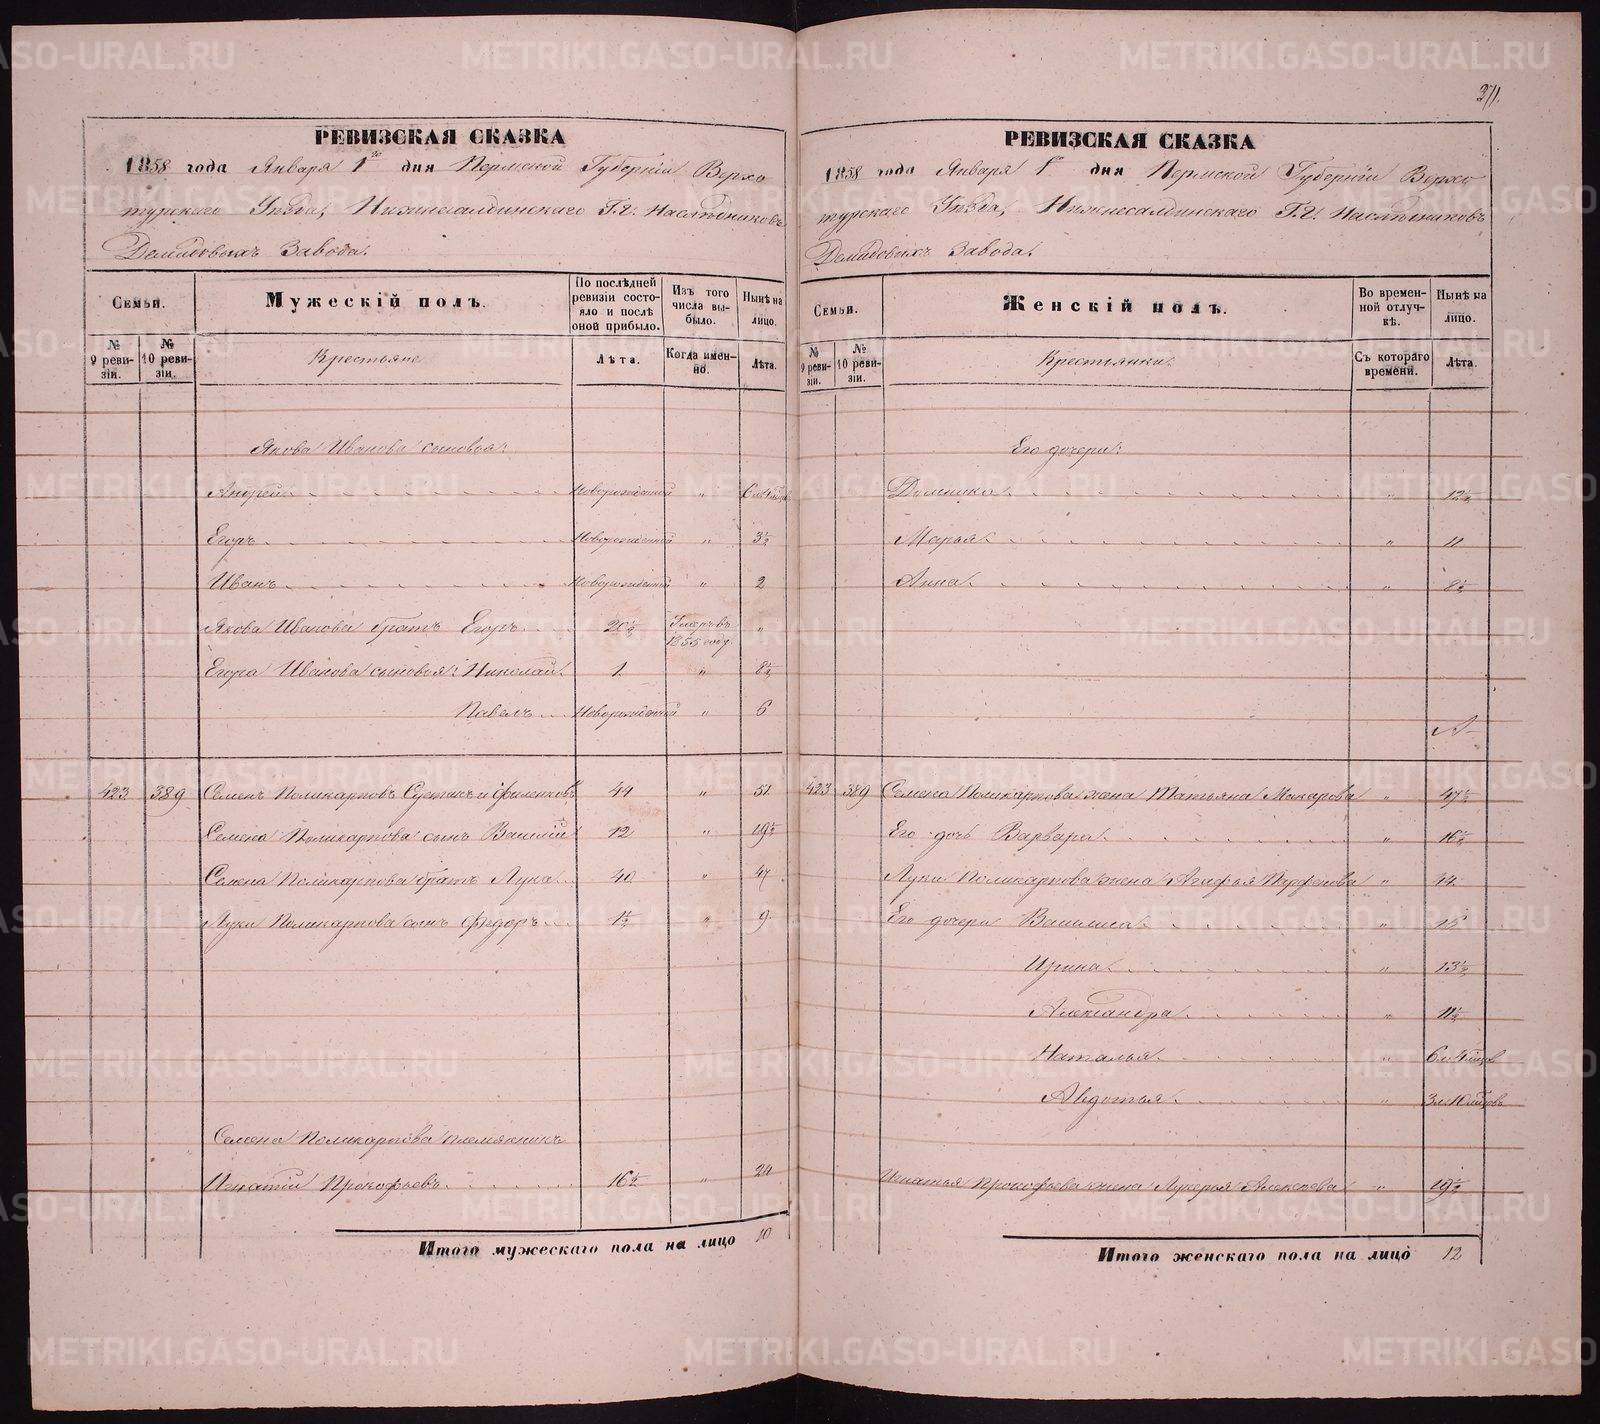 371.
РЕВИЗСКАЯ СКАЗКА
1858 года Января 1го дня Пермской Губерніи Верхо
турскаго Уѣзда, Нижнесалдинскаго Г.г. Наслѣдниковъ
Демидовыхъ Завода.
Семьи.
Мужескій полъ.
По послѣдней ревизіи состояло и послѣ оной прибыло.
Изъ того числа выбыло.
Нынѣ на лицо.
№ 9 ревизіи.
№ 10 ревизіи.
Крестьяне
Лѣта.
Когда именно.
Лѣта.
Якова Иванова сыновья:
Андрей новорожденный " 6 л. 4 мѣц.
Егоръ Новорожденный " 3½
Иванъ Новорожденный " 2
Якова Иванова братъ Егоръ 20½ Умеръ въ 1855 году "
Егора Иванова сыновья: Николай 1 " 8½
Павелъ Новорожденный " 6
423 389 Семенъ Поликарповъ 44 " 51
Семена Поликарпова сынъ Василій 12 " 19½
Семена Поликарпова братъ Лука 40 " 47
Луки Поликарпова сынъ Федоръ 1½ " 9
Семена Поликарпова племянникъ
Игнатій Прокофьевъ 16½ " 24
Итого мужескаго пола на лицо 10
РЕВИЗСКАЯ СКАЗКА
1858 года Января 1го дня Пермской Губерніи Верхо
турскаго Уѣзда, Нижнесалдинскаго Г.г. Наслѣдниковъ
Демидовыхъ Завода.
Семьи.
Женскій полъ.
Во временной отлучкѣ.
Нынѣ на лицо.
№ 9 ревизіи.
№ 10 ревизіи.
Крестьянки.
Съ котораго времени.
Лѣта.
Его дочери:
Домника " 12½
Марья " 11
Анна " 8½
423 389 Семена Поликарпова жена Татьяна Макарова " 47½
Его дочь Варвара " 16½
Луки Поликарпова жена Агафья Парфенова " 44
Его дочери Василиса " 15
Ирина " 13½
Александра " 11½
Наталья " 6 л. 4 мѣцов
Авдотья " 3 л. 10 мѣцовъ
Игнатья Прокофьева жена Лукерья Алексѣева " 19½
Итого женскаго пола на лицо 12
METRIKI.GASO-URAL.RU